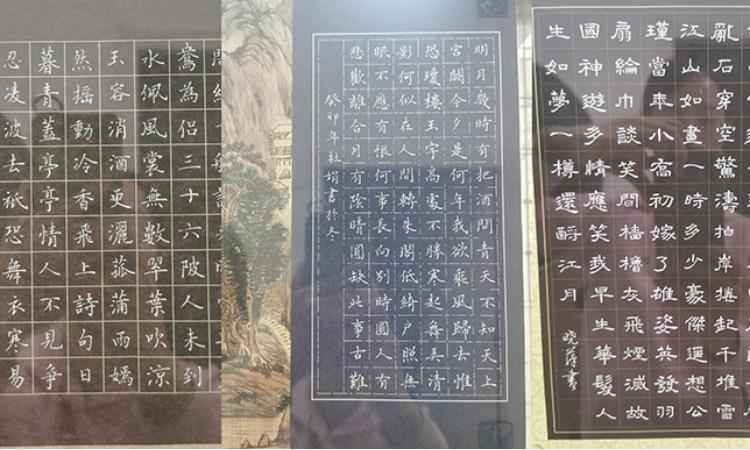 鴦為侶三十六陂人未到
水佩風裳無數翠葉吹涼
玉容消酒更灑菰蒲雨嫣
然搖動冷香飛上詩句日
暮青蓋亭亭情人不見爭
忍凌波去祇恐舞衣寒易
明月幾時有把酒問青天不知天上
宮闕今夕是何年我欲乘風歸去惟
恐瓊樓玉宇高處不勝寒起舞弄清
影何似在人間轉朱閣低綺户照無
眠不應有恨何事長向別時圓人有
悲歡離合月有陰晴圓缺此事古難
癸卯年杜娟書於冬
亂石穿空驚濤拍岸捲起千堆雪
江山如畫一時多少豪傑遙想公
瑾當年小喬初嫁了雄姿英發羽
扇綸巾談笑間檣櫓灰飛煙滅故
國神遊多情應笑我早生華髮人
生如夢一樽還酹江月